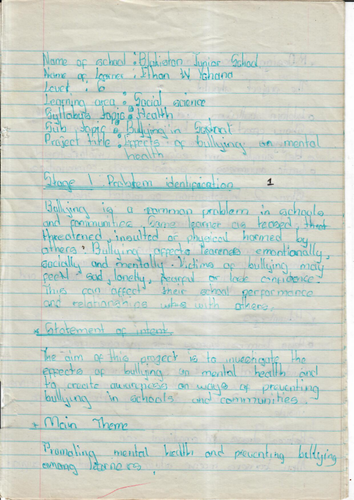 Name of school : Junior School
Name of Learner : Ethan W Yohana
Level : 6
Learning area : Social science
Syllabus topic : Health
Sub topic : Bullying in
Project title : Effects of bullying on mental
health
Stage 1 Problem identification 1
Bullying is a common problem in schools
and communities. Some learner are teased,
threatened, insulted or physical harmed by
others. Bullying affects learners emotionally,
socially and mentally. Victims of bullying may
feel sad, lonely, fearful or lose confidence.
This can affect their school performance
and relationships with others.
* Statement of intent
The aim of this project is to investigate the
effects of bullying on mental health and
to create awareness on ways of preventing
bullying in schools and communities.
* Main Theme
Promoting mental health and preventing bullying
among learners.